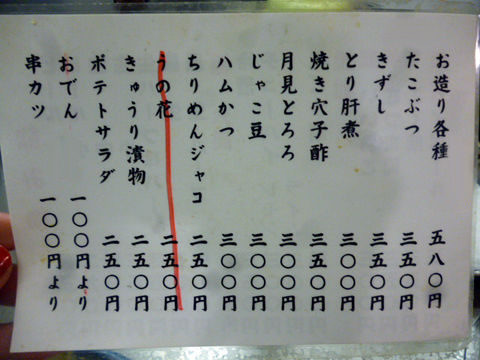 お造り各種 五八〇円
たこぶつ 三五〇円
きずし 三五〇円
とり肝煮 三〇〇円
焼き穴子酢 三五〇円
月見とろろ 三〇〇円
じゃこ豆 三〇〇円
ハムかつ 三〇〇円
ちりめんジャコ 二五〇円
うの花 二五〇円
きゅうり漬物 二五〇円
ポテトサラダ 二五〇円
おでん 一〇〇円より
串カツ 一〇〇円より